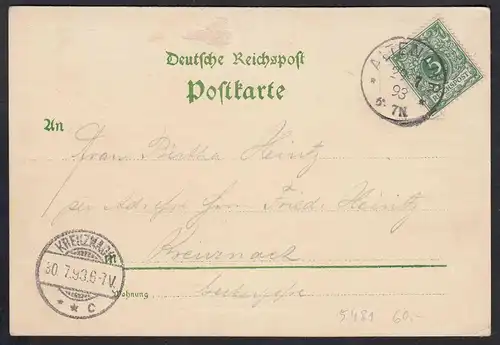 Deutsche Reichspost
Postkarte
An
Frau Bertha Heintz
per Adresse Frn Fried. Heintz
Kreuznach
Wohnung
KREUZNACH
30.7.93.6-7V.
* * C
ALZEN
93
5. 7N
5
REICHSPOST
5481 60.-